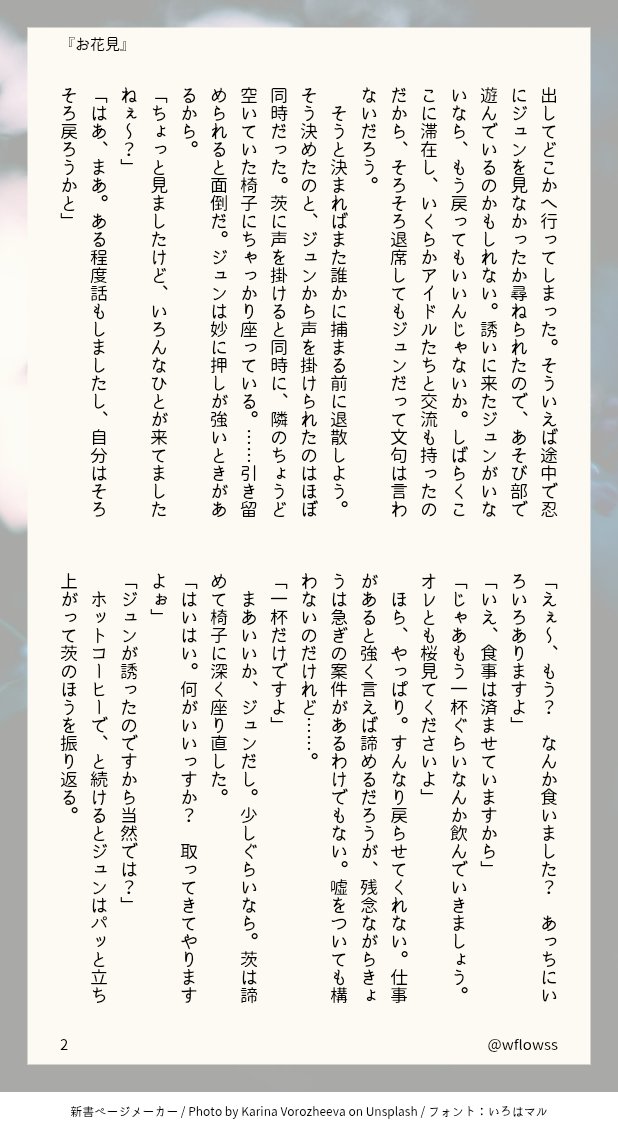 『お花見』
出してどこかへ行ってしまった。そういえば途中で忍
にジュンを見なかったか尋ねられたので、あそび部で
遊んでいるのかもしれない。誘いに来たジュンがいな
いなら、もう戻ってもいいんじゃないか。しばらくこ
こに滞在し、いくらかアイドルたちと交流も持ったの
だから、そろそろ退席してもジュンだって文句は言わ
ないだろう。
　そうと決まればまた誰かに捕まる前に退散しよう。
そう決めたのと、ジュンから声を掛けられたのはほぼ
同時だった。茨に声を掛けると同時に、隣のちょうど
空いていた椅子にちゃっかり座っている。……引き留
められると面倒だ。ジュンは妙に押しが強いときがあ
るから。
「ちょっと見ましたけど、いろんなひとが来てました
ねぇ～？」
「はあ、まあ。ある程度話もしましたし、自分はそろ
そろ戻ろうかと」
「えぇ～、もう？　なんか食いました？　あっちにい
ろいろありますよ」
「いえ、食事は済ませていますから」
「じゃあもう一杯ぐらいなんか飲んでいきましょう。
オレとも桜見てくださいよ」
　ほら、やっぱり。すんなり戻らせてくれない。仕事
があると強く言えば諦めるだろうが、残念ながらきょ
うは急ぎの案件があるわけでもない。嘘をついても構
わないのだけれど……。
「一杯だけですよ」
　まあいいか、ジュンだし。少しぐらいなら。茨は諦
めて椅子に深く座り直した。
「はいはい。何がいいっすか？　取ってきてやります
よぉ」
「ジュンが誘ったのですから当然では？」
　ホットコーヒーで、と続けるとジュンはパッと立ち
上がって茨のほうを振り返る。
2
@wflowss
新書ページメーカー / Photo by Karina Vorozheeva on Unsplash / フォント：いろはマル